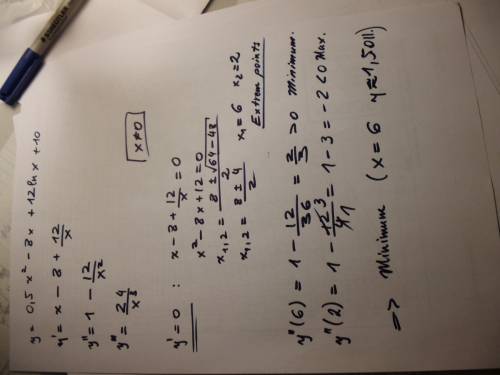 y = 0,5x² - 8x + 12 ln x + 10
y' = x - 8 + 12/x
y'' = 1 - 12/x²
y''' = 24/x³
x ≠ 0
y' = 0 : x - 8 + 12/x = 0
x² - 8x + 12 = 0
x₁,₂ = (8 ± √(64 - 48))/2
x₁,₂ = (8 ± 4)/2 x₁ = 6 x₂ = 2
Extrem points
y''(6) = 1 - 12/36 = 2/3 > 0 Minimum.
y''(2) = 1 - 12 3/4 1 = 1 - 3 = -2 < 0 Max.
=> Minimum (x = 6 y ≈ 1,5011.